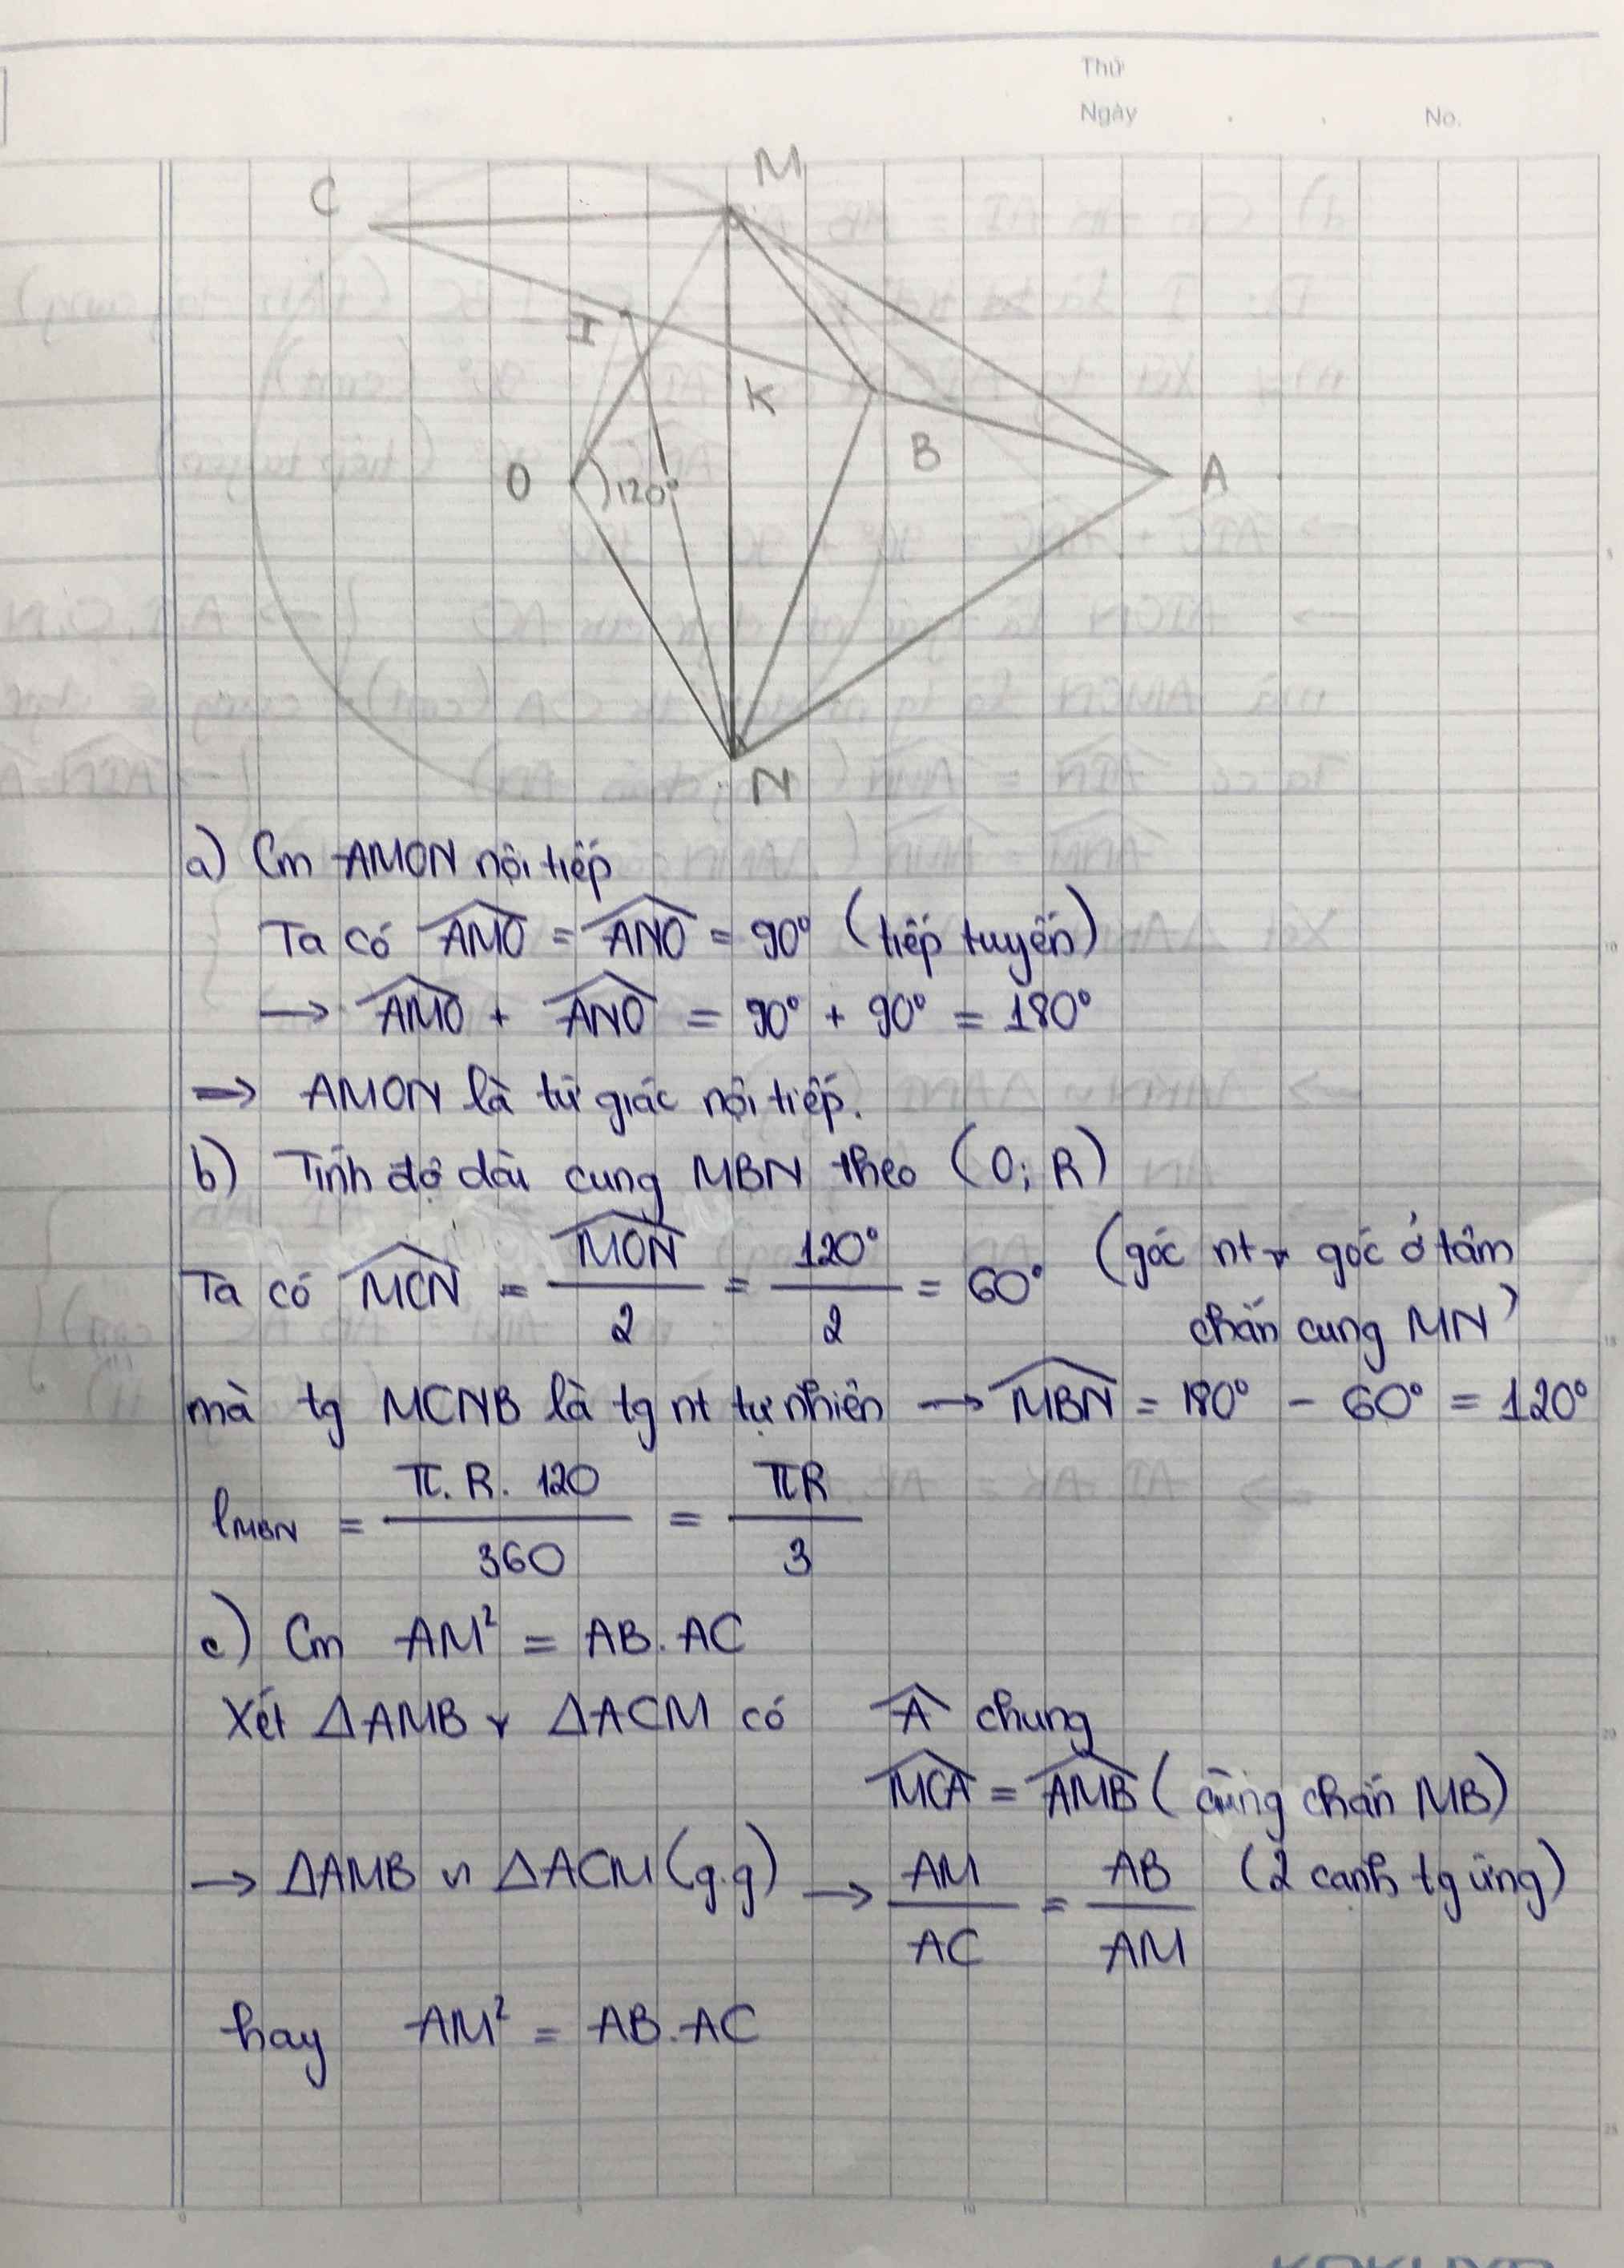 Thứ
Ngày . . No.
C M
I K
O 120° B A
N
a) Cm AMON nội tiếp
Ta có AMO = ANO = 90° (tiếp tuyến)
→ AMO + ANO = 90° + 90° = 180°
⇒ AMON là tứ giác nội tiếp.
b) Tính độ dài cung MBN theo (O; R)
Ta có MCN = MON/2 = 120°/2 = 60° (góc nt v góc ở tâm
chắn cung MN)
mà tg MCNB là tg nt tự nhiên → MBN = 180° - 60° = 120°
lMBN = π. R. 120/360 = πR/3
c) Cm AM² = AB. AC
Xét ΔAMB v ΔACM có A chung
MCA = AMB (cùng chắn MB)
→ ΔAMB ∽ ΔACM (g.g) → AM/AC = AB/AM (2 cạnh tg ứng)
hay AM² = AB. AC